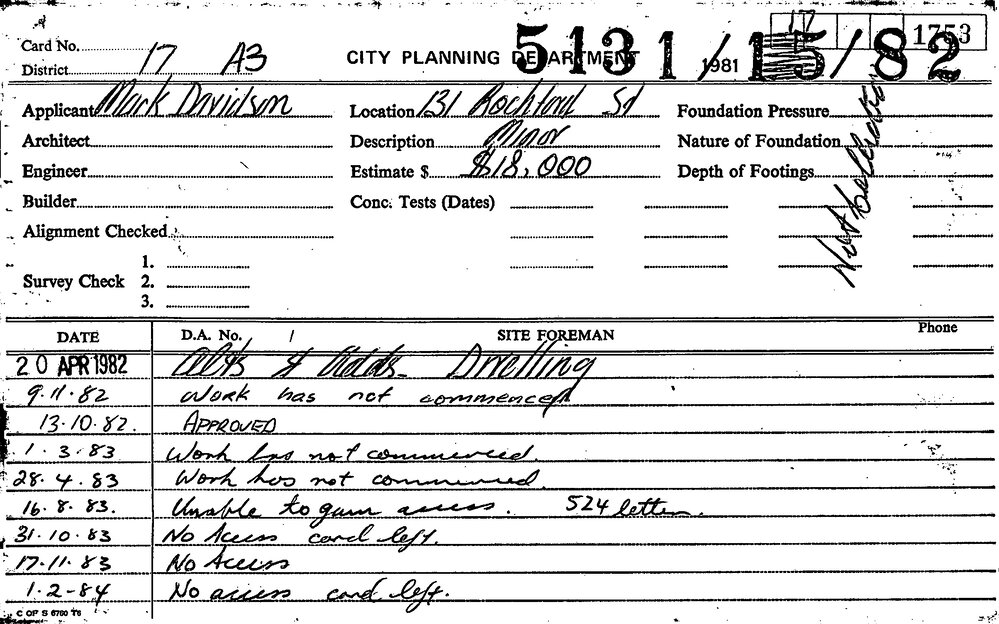 Card No. 17 A3
District
CITY PLANNING DEPARTMENT
5131/1981 15/82
17 1753
Applicant Mark Davidson Location 131 Rochford St Foundation Pressure
Architect Description Minor Nature of Foundation
Engineer Estimate $ $18,000 Depth of Footings
Builder Conc. Tests (Dates)
Not
Alignment Checked
1.
Survey Check 2.
3.
DATE D.A. No. / SITE FOREMAN Phone
20 APR 1982 Alts & Adds- Dwelling
9.11.82 Work has not commenced
13.10.82. APPROVED
1.3.83 Work has not commenced.
28.4.83 Work has not commenced.
16.8.83. Unable to gain access. 524 letter.
31.10.83 No Access card left.
17.11.83 No Access
1.2-84 No access card left.
C OF S 6760 T6